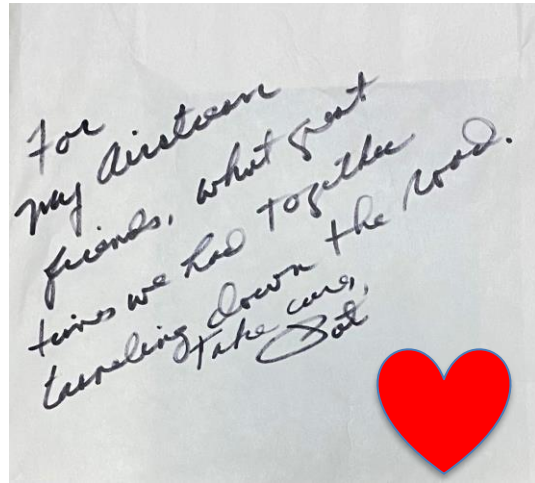 For
my Airstream
friends, what great
times we had together
traveling down the road.
Take care,
Pat